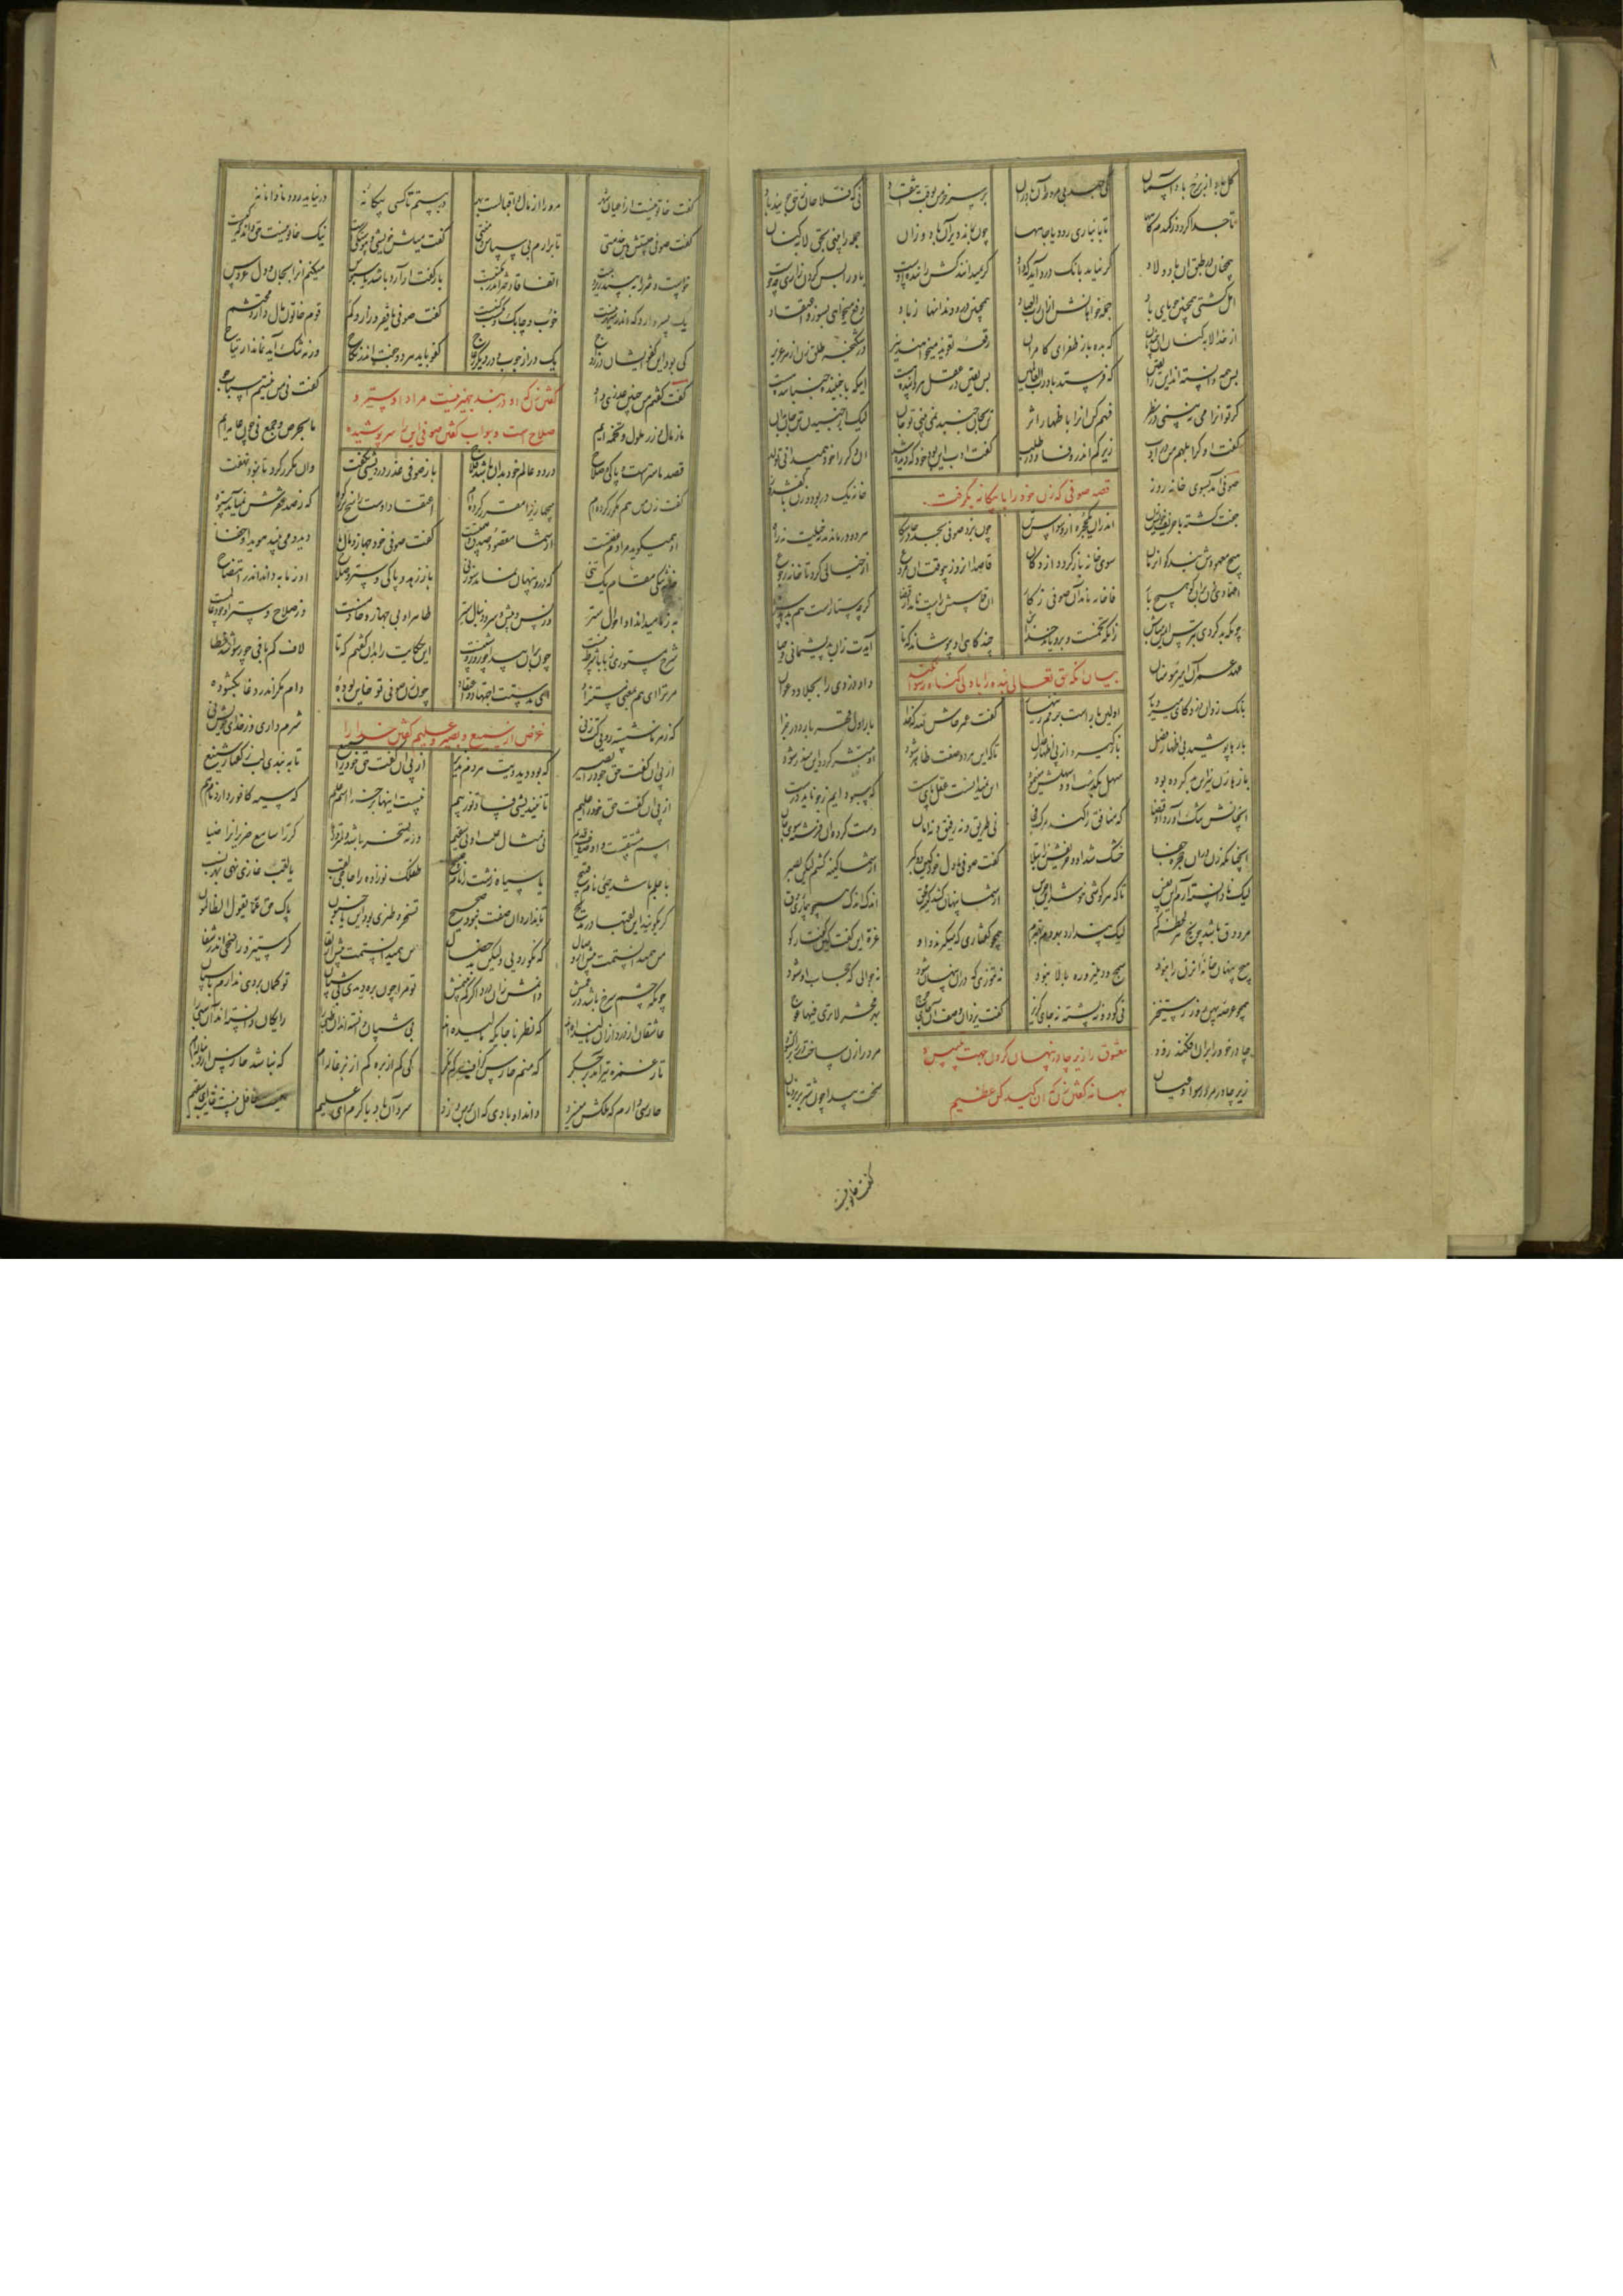 کل باد از برج باد آسمان کی جهد بی مروحه آن بادران بر سر خرمن بوقت انتقاد نی که فلاحان ز حق جویند باد
تا جدا کردد ز کندم کاهها تا بانباری رود یا چاهها چون بماند دیر آن باد وزان جمله را بینی بحق لابه کنان
همچنان در طلق آن باد ولاد کر نیاید بانک درد آید که داد کر نمیدانند کش راننده اوست باد را پس کردن زاری چه خوست
اهل کشتی همچنین جویای باد جمله خواهانش ازان رب العباد همچنین در درد دندانها ز باد دفع میخواهی بسوز و اعتقاد
از خدا لابه کنان آن جندیان که بده باد ظفر ای کامران رقعه تعویذ میخواهند نیز در شکنجه طلق زن از هر عزیز
پس همه دانسته اند این را یقین که فرستد باد رب العالمین پس یقین در عقل هر داننده است اینکه با جنبنده جنباننده هست
کر تو آنرا می نبینی در نظر فهم کن آنرا باظهار اثر تن بجان جنبد نمی بینی تو جان لیک از جنبیدن تن جان بدان
کفت او کر ابلهم من در ادب زیرکم اندر وفا و در طلب کفت ادب این بود خود که دیده شد آن دکر را خود همیدانی تو لد
قصه صوفی که زن خود را با بیکانه بگرفت
صوفی آمد بسوی خانه روز خانه یک در بود و زن با کفش دوز
جفت کشته با اندران یک حجره از وسواس تن چون بزد صوفی بجد در چاشتکاه هر دو درماندند نه حیلت نه راه
هیچ معهودش نبد کو آن زمان سوی خانه باز کردد از دکان قاصدا آنروز بیوقت آن مروع از خیالی کرد تا خانه رجوع
اعتماد زن بران کو هیچ بار فا خانه نامد آن صوفی ز کار آن قیاسش راست نامد از قضا کرچه ستارست هم بدهد سزا
چونکه بد کردی بترس ایمن مباش زانکه تخمست و برویاند خداش چند کاهی او بپوشاند که تا آیدت زان بد پشیمانی و حیا
بیان آنکه حق تعالی بنده را باول گناه رسوا نکند
عهد عمر آن امیر مومنان داد دزدی را بجلاد و عوان
بانک زد آن دزد کای میر دیار اولین بارست جرمم زینهار کفت عمر حاش لله که خدا بار اول قهر بارد در جزا
بارها پوشد پی اظهار فضل باز کیرد از پی اظهار عدل تا که این هر دو صفت ظاهر شود آن مبشر کردد این منذر شود
بارها زن نیز این بد کرده بود سهل بکذشت او و سهلش مینمود آن نمیدانست عقل پای سست که سبو دایم ز جو ناید درست
آنچنانش تنک آورد آن قضا که منافق را کند مرک فجا نی طریق و نه رفیق و نه امان دست کرده آن فرشته سوی جان
آنچنانکه زن در آن حجره جفا خشک شد او و حریفش ز ابتلا کفت صوفی با دل خود کای دو کبر از شما کینه کشم لیکن بصبر
لیک نادانسته آرم این نفس تا که هر کوشی ننوشد این جرس از شما پنهان کشد کینه محق اندک اندک همچو بیماری دق
مرد دق باشد چو یخ هر لحظه کم لیک پندارد بهر دم بهترم همچو کفتاری که میکیرند و او غره این کفت کین کفتار کو
هیچ پنهان خانه آن زن را نبود سمج و دهلیز و ره بالا نبود نه تنوری که در آن پنهان شود نه جوالی که حجاب او شود
همچو عرصه پهن روز رستخیز نی کو و نی پشته نه جای کریز کفت یزدان وصف آن جای حرج بهر محشر لا تری فیها عوج
معشوق را زیر چادر پنهان کردن جهت تلبیس و
بهانه گفتن زن که ان کیدکن عظیم
چادر خود را بران افکند زود مرد را زن ساخت و در را بر کشود
زیر چادر مرد رسوا و عیان سخت پیدا چون شتر بر نردبان
کفت خاتونیست
کفت خاتونیست از اعیان شهر مرورا از مال و اقبالست بهر در ببستم تا کسی بیکانه در نیاید زود نادانانه
کفت صوفی چیستش هین خدمتی تا برآرم بی سپاس و منتی کفت میلش خویشی و پیوستکیست نیک خاتونیست حق داند که کیست
خواست دختر را ببیند زیر دست اتفاقا دختر اندر مکتبست باز کفت ار آرد باشد یا سبوس میکنم او را بجان و دل عروس
یک پسر دارد که اندر شهر نیست خوب و چابک کفت صوفی ما فقیر و زار و کم قوم خاتون مال دار و محتشم
کی بود این کفو ایشان در زواج یک در از چوب و در دیکر ز عاج کفو باید هر دو جفت اندر نکاح ورنه تنک آید نماند ارتیاح
گفتن زن که او در بند جهیز نیست مراد او ستر و
صلاح است و جواب گفتن صوفی این را سرپوشیده
کفت کفتم من چنین عذری و او کفت نی من نیستم اسباب جو
ما ز مال و زر ملول و تخمه ایم ما بحرص و جمع نی چون عامه ایم
قصد ما سترست و پاکی و صلاح در دو عالم خود بدان باشد فلاح باز صوفی عذر درویشی بکفت وان مکرر کرد تا نبود نهفت
کفت زن من هم مکرر کرده ام بی جهازی را مقرر کرده ام اعتقاد اوست راسخ تر ز کوه که ز صد فقرش نمی آید شکوه
او همیکوید مرادم عفتست از شما مقصود صدق و همتست کفت صوفی خود جهاز و مال ما دید و می بیند هویدا و خفا
خانه تنکی مقام یک تنی که درو پنهان نماند سوزنی باز ستر و پاکی و زهد و صلاح او ز ما به داند اندر انتصاح
به ز ما میداند او احوال ستر وز پس و پیش و سر و دنبال ستر ظاهرا او بی جهاز و خادمست وز صلاح و ستر او خود عالمست
شرح مستوری ز بابا شرط نیست چون برو پیدا چو روز روشنیست این حکایت را بدان کفتم که تا لاف کم بافی چو رسوا شد خطا
مر ترا ای هم بدعوی مستزاد این بدستت اجتهاد و اعتقاد چون زن صوفی تو خاین بوده دام مکر اندر دغا بکشوده
که ز هر ناشسته رویی کپ زنی شرم داری وز خدای خویش نی
غرض از سمیع و بصیر و علیم گفتن خدا را
از پی آن کفت حق خود را بصیر که بود دید ویت هر دم نذیر از پی آن کفت حق خود را سمیع تا ببندی لب ز کفتار شنیع
از پی آن کفت حق خود را علیم تا نیندیشی فسادی تو ز بیم نیست اینها بر خدا اسم علم که سیه کافور دارد نام هم
اسم مشتقست و اوصاف قدیم نی مثال علت اولی سقیم ورنه تسخر باشد و طنز و دها کر را سامع ضریر را ضیا
یا علم باشد حیی نام وقیح یا سیاه زشت را نام صبیح طفلک نوزاده را حاجی لقب یا لقب غازی نهی بهر نسب
کر بکویند این لقبها در مدیح تا ندارد آن صفت نبود صحیح تسخر و طنزی بود آن یا جنون پاک حق عما یقول الظالمون
من همی دانستمت پیش از وصال که نکو رویی ولیکن بدخصال من همی دانستمت پیش از لقا کز ستیزه راسخی اندر شقا
چونکه چشمم سرخ باشد در عمش دانمش زان درد اکر کم بینمش تو مرا چون بره دیدی بی شبان تو کمان بردی ندارم پاسبان
عاشقان از درد زان نالیده اند که نظر ناجایکه مالیده اند بی شبان دانسته اند آن ظبی را رایکان دانسته اند آن سبی را
تا ز غمزه تیر آمد بر جکر که منم حارس کزافه کم نکر کی کم از بره کم از بزغاله ام که نباشد حارس از دنباله ام
حارسی دارم که ملکش میسزد داند او بادی که آن بر من وزد سرد آن باد یا کرم ای علیم نیست غافل نیست غایب ای سقیم